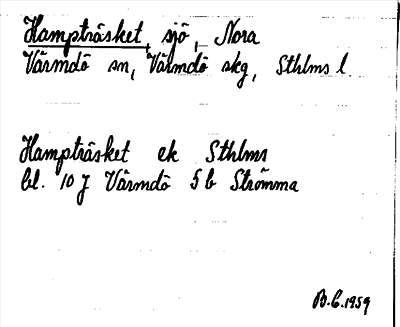 Hampträsket, sjö, Nora
Värmdö sn, Värmdö skg, Sthlms l
Hampträsket ek Sthlms
bl. 10 J Värmdö 5 b Strömma
B.C. 1959